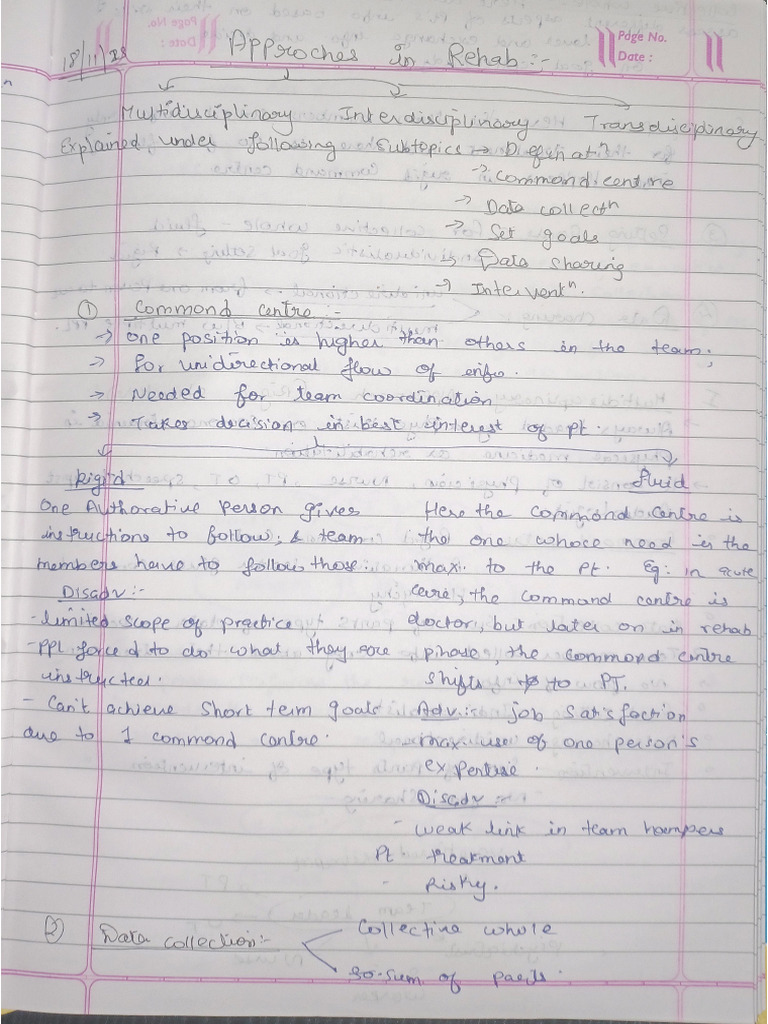 Page No.
Date :
18/11/23
Approches in Rehab :-
Multidisciplinary Interdisciplinary Transdisciplinary
Explained under following Subtopics → Definatiⁿ
→ Command centre
→ Data collectⁿ
→ Set goals
→ Data sharing
→ Interventⁿ.
① Command centre :-
→ One position is higher than others in the team.
→ for unidirectional flow of info.
→ Needed for team coordination
→ Takes decision in best interest of pt.
Rigid
One Authorative Person gives
instructions to follow, & team
members have to follow those
Disadv :-
- limited scope of practice
- PPL forced to do what they are
instructed.
- Can't achieve short term goals
due to 1 command centre.
fluid
Here the command centre is
the one whose need is the
max. to the pt. Eg: in acute
care, the command centre is
doctor, but later on in rehab
phase, the command centre
shifts to PT.
Adv :- job satisfaction
max use of one person's
expertise.
Disadv
- weak link in team hampers
Pt treatment
- Risky.
② Data collection :-
Collective whole
so-sum of parts.